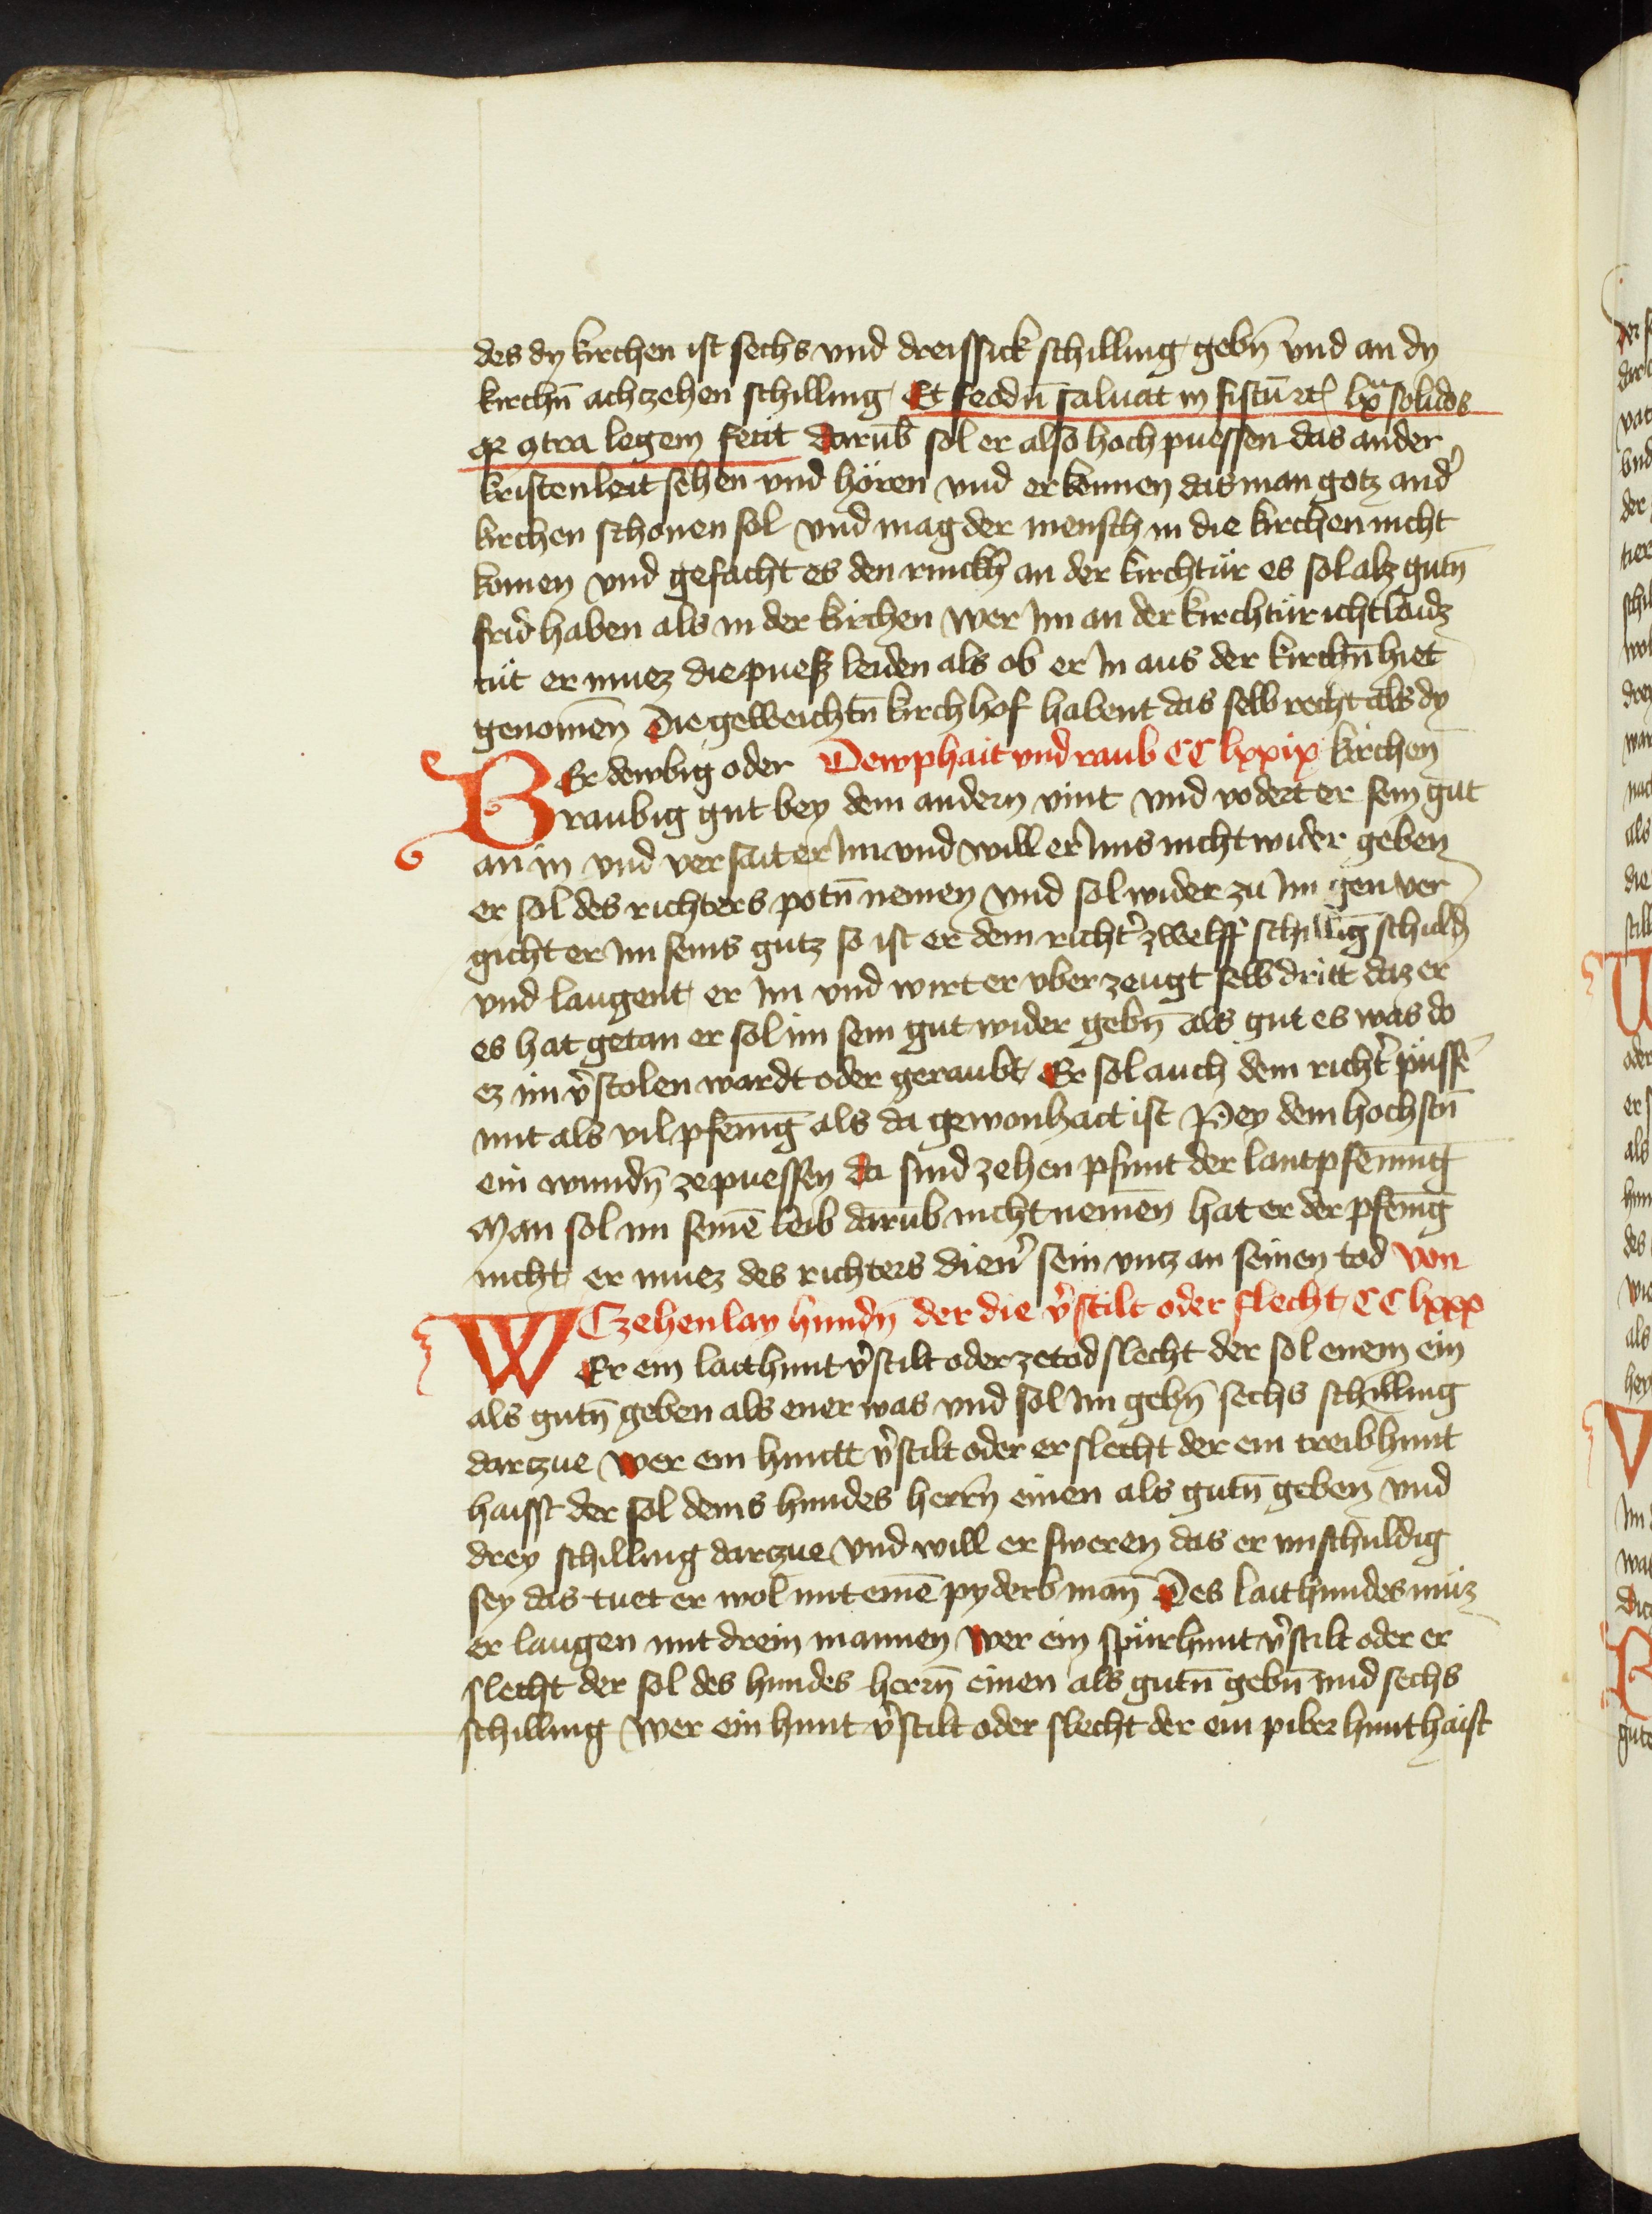 des dy kirchen ist sechs vnd dreissick schilling gebn̄ vnd an dy
kirchn̄ achzehen schilling Et feodū saluat in fiscū lx solidos
qr ꝯtra legem fecit darūb sol er also hoch puessen das ander
kristenleüt sehen vnd hören vnd erkennen das man gotz and̉
kirchen schonen sol vnd mag der mensch in die kirchen nicht
komen vnd gefacht es den rinckh an der kirchtür es sol alz gutn̄
frid haben als in der kirchen wer im an der kirchtür icht laidz
tüt er muez die puesz leiden als ob er in aus der kirchn̄ hiet
genomen̄ Die geweichtn̄ kirchhof habent das selb recht als dy
Er dewbig oder Dewphait vnd raub CC lxxix kirchen
B raubig gut bey dem andern vint vnd vodert er sein gut
an in vnd versait er im vnd will er ims nicht wider geben
er sol des richters potn̄ nemen vnd sol wider zu im gen ver
gicht er im seins gutz so ist er dem richt̉ zwelff schillīg schuld
vnd laugent er im vnd wirt er vberzeugt selb dritt daz er
es hat getan er sol im sein gut wider gebn̄ als gut es was do
ez im v̉stolen wardt oder geraubt Er sol auch dem richt̉ püssē
mit als vil pfenīg als da gewonhait ist Pey dem hochstn̄
ein wundn̄ ze puessen da sind zehen pfunt der lantpfenning
Man sol im seinē leib darūb nicht nemen̄ hat er der pfenīg
nicht er muez des richters dien̉ sein vncz an seinen tod von
Czehenlay hundn̄ der die v̉stilt oder slecht CC lxxx
W Er ein laithunt v̉stilt oder ze tod slecht der sol enem ein
als gutn̄ geben als ener was vnd sol im gebn̄ sechs schilling
darczue wer ein huntt v̉stilt oder erslecht der ein treibhunt
haisst der sol dems hundes herrn̄ einen als gutn̄ geben vnd
drey schilling darczue vnd will er sweren das er vnschuldig
sey das tuet er wol mit einē pyderb man̄ Des laithundes müz
er laugen mit drein mannen wer ein spürhunt v̉stilt oder er
slecht der sol des hundes herrn̄ einen als gutn̄ gebn̄ vnd sechs
schilling wer ein hunt v̉stilt oder slecht der ein piber hunt haist